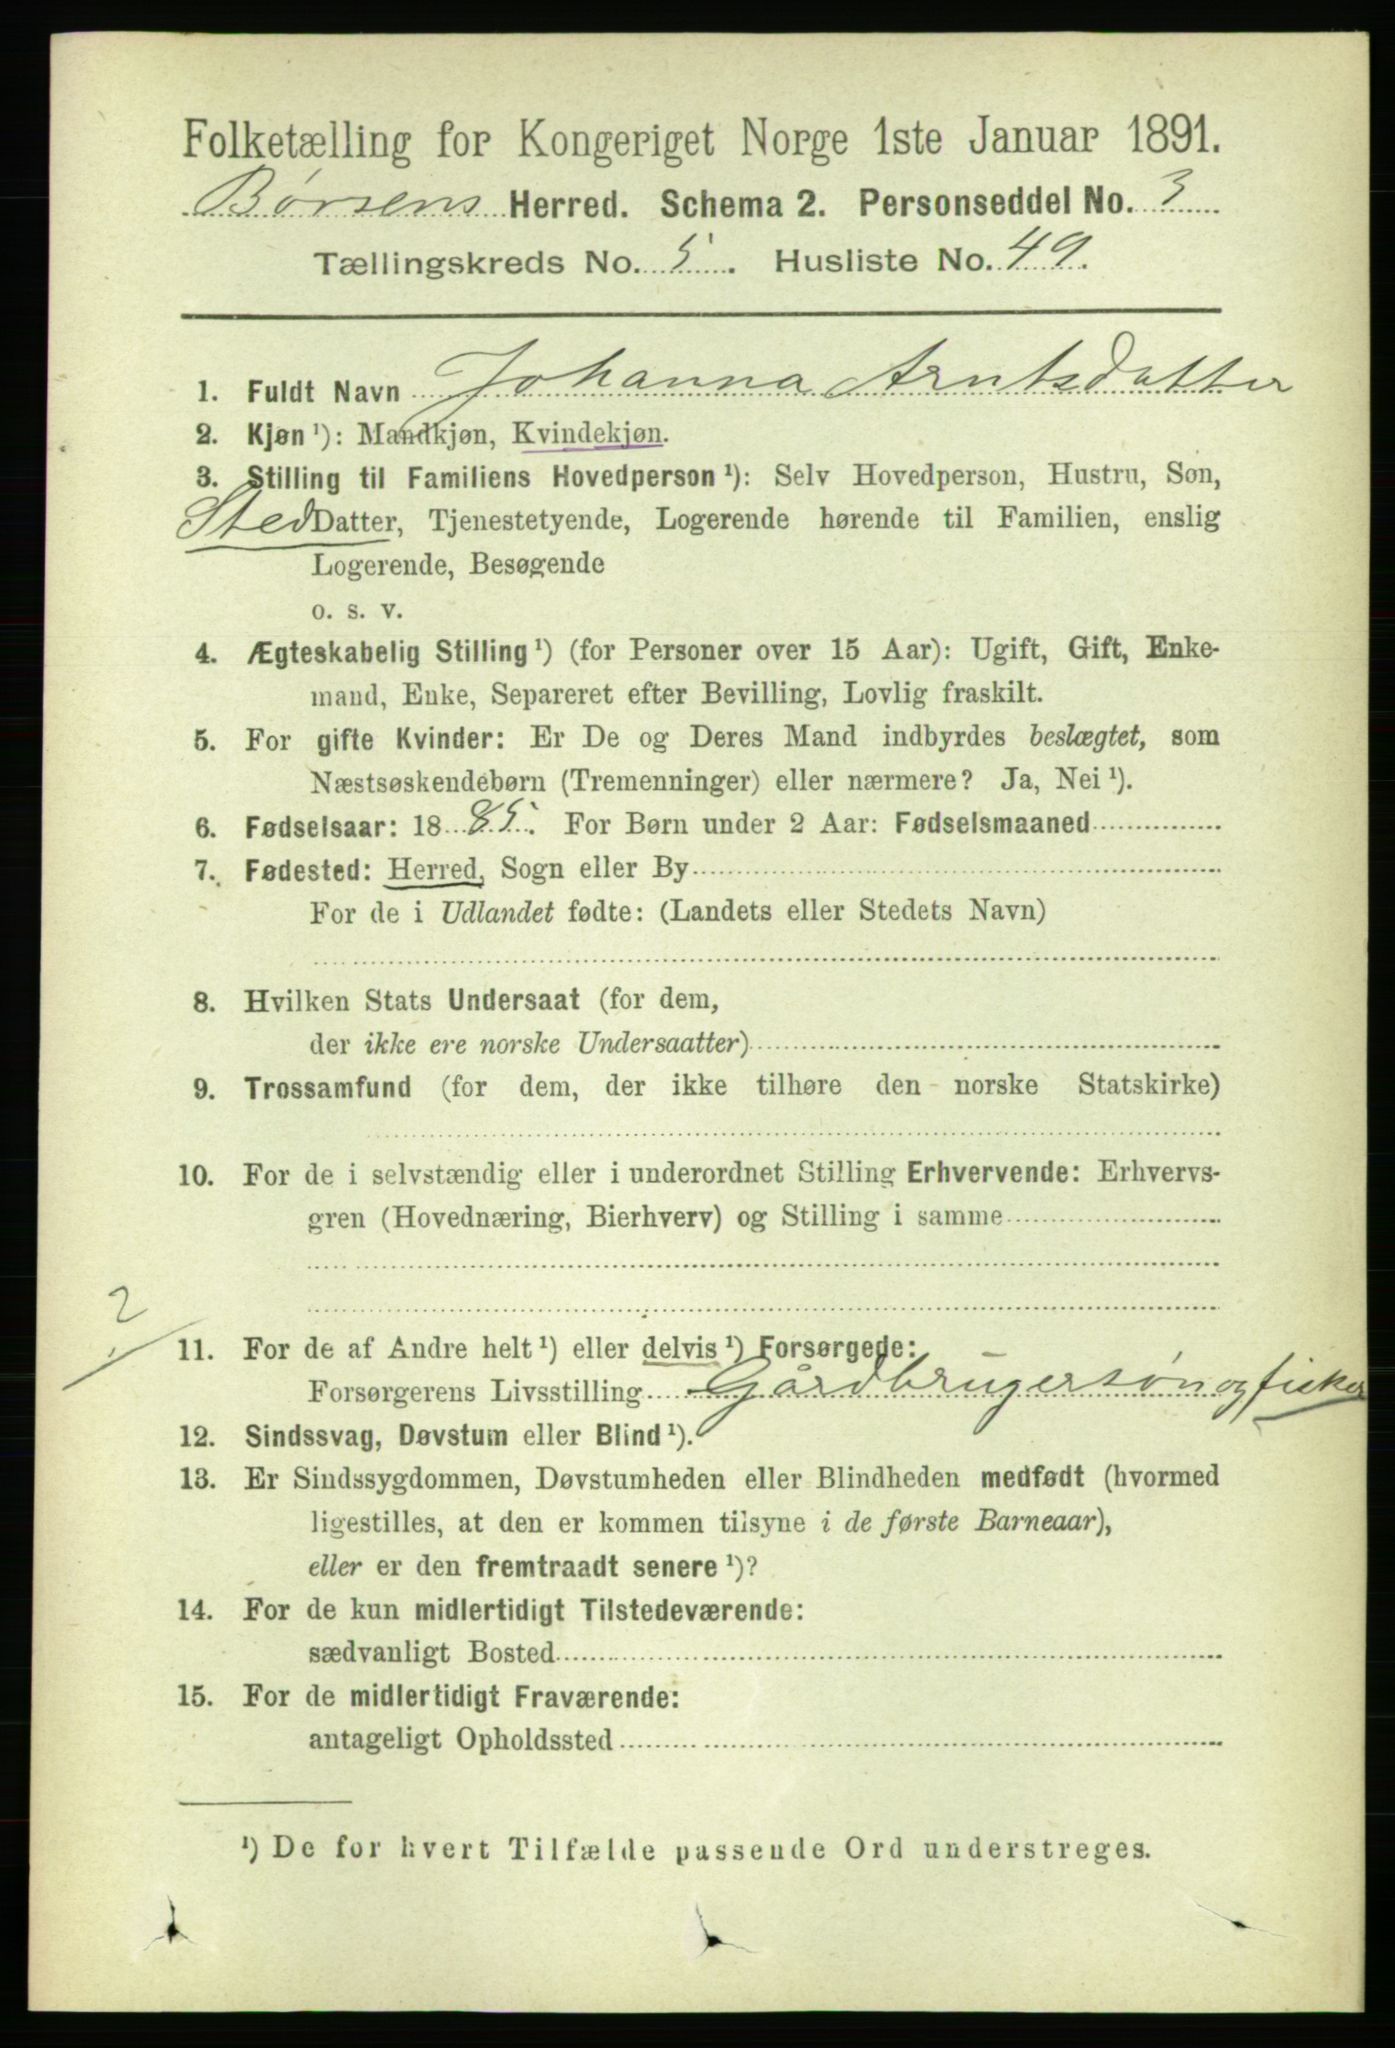 Folketælling for Kongeriget Norge 1ste Januar 1891.
Børsens Herred. Schema 2. Personseddel No. 3
Tællingskreds No. 5. Husliste No. 49.
1. Fuldt Navn Johanna Arntsdatter
2. Kjøn ¹): Mandkjøn, Kvindekjøn.
3. Stilling til Familiens Hovedperson ¹): Selv Hovedperson, Hustru, Søn,
Sted Datter, Tjenestetyende, Logerende hørende til Familien, enslig
Logerende, Besøgende
o. s. v.
4. Ægteskabelig Stilling ¹) (for Personer over 15 Aar): Ugift, Gift, Enke-
mand, Enke, Separeret efter Bevilling, Lovlig fraskilt.
5. For gifte Kvinder: Er De og Deres Mand indbyrdes beslægtet, som
Næstsøskendebørn (Tremenninger) eller nærmere? Ja, Nei ¹).
6. Fødselsaar: 18 85. For Børn under 2 Aar: Fødselsmaaned
7. Fødested: Herred, Sogn eller By
For de i Udlandet fødte: (Landets eller Stedets Navn)
8. Hvilken Stats Undersaat (for dem,
der ikke ere norske Undersaatter)
9. Trossamfund (for dem, der ikke tilhøre den norske Statskirke)
10. For de i selvstændig eller i underordnet Stilling Erhvervende: Erhvervs-
gren (Hovednæring, Bierhverv) og Stilling i samme
2
11. For de af Andre helt ¹) eller delvis ¹) Forsørgede:
Forsørgerens Livsstilling Gårdbrugersøn og fisker
12. Sindssvag, Døvstum eller Blind ¹).
13. Er Sindssygdommen, Døvstumheden eller Blindheden medfødt (hvormed
ligestilles, at den er kommen tilsyne i de første Barneaar),
eller er den fremtraadt senere ¹)?
14. For de kun midlertidigt Tilstedeværende:
sædvanligt Bosted
15. For de midlertidigt Fraværende:
antageligt Opholdssted
¹) De for hvert Tilfælde passende Ord understreges.